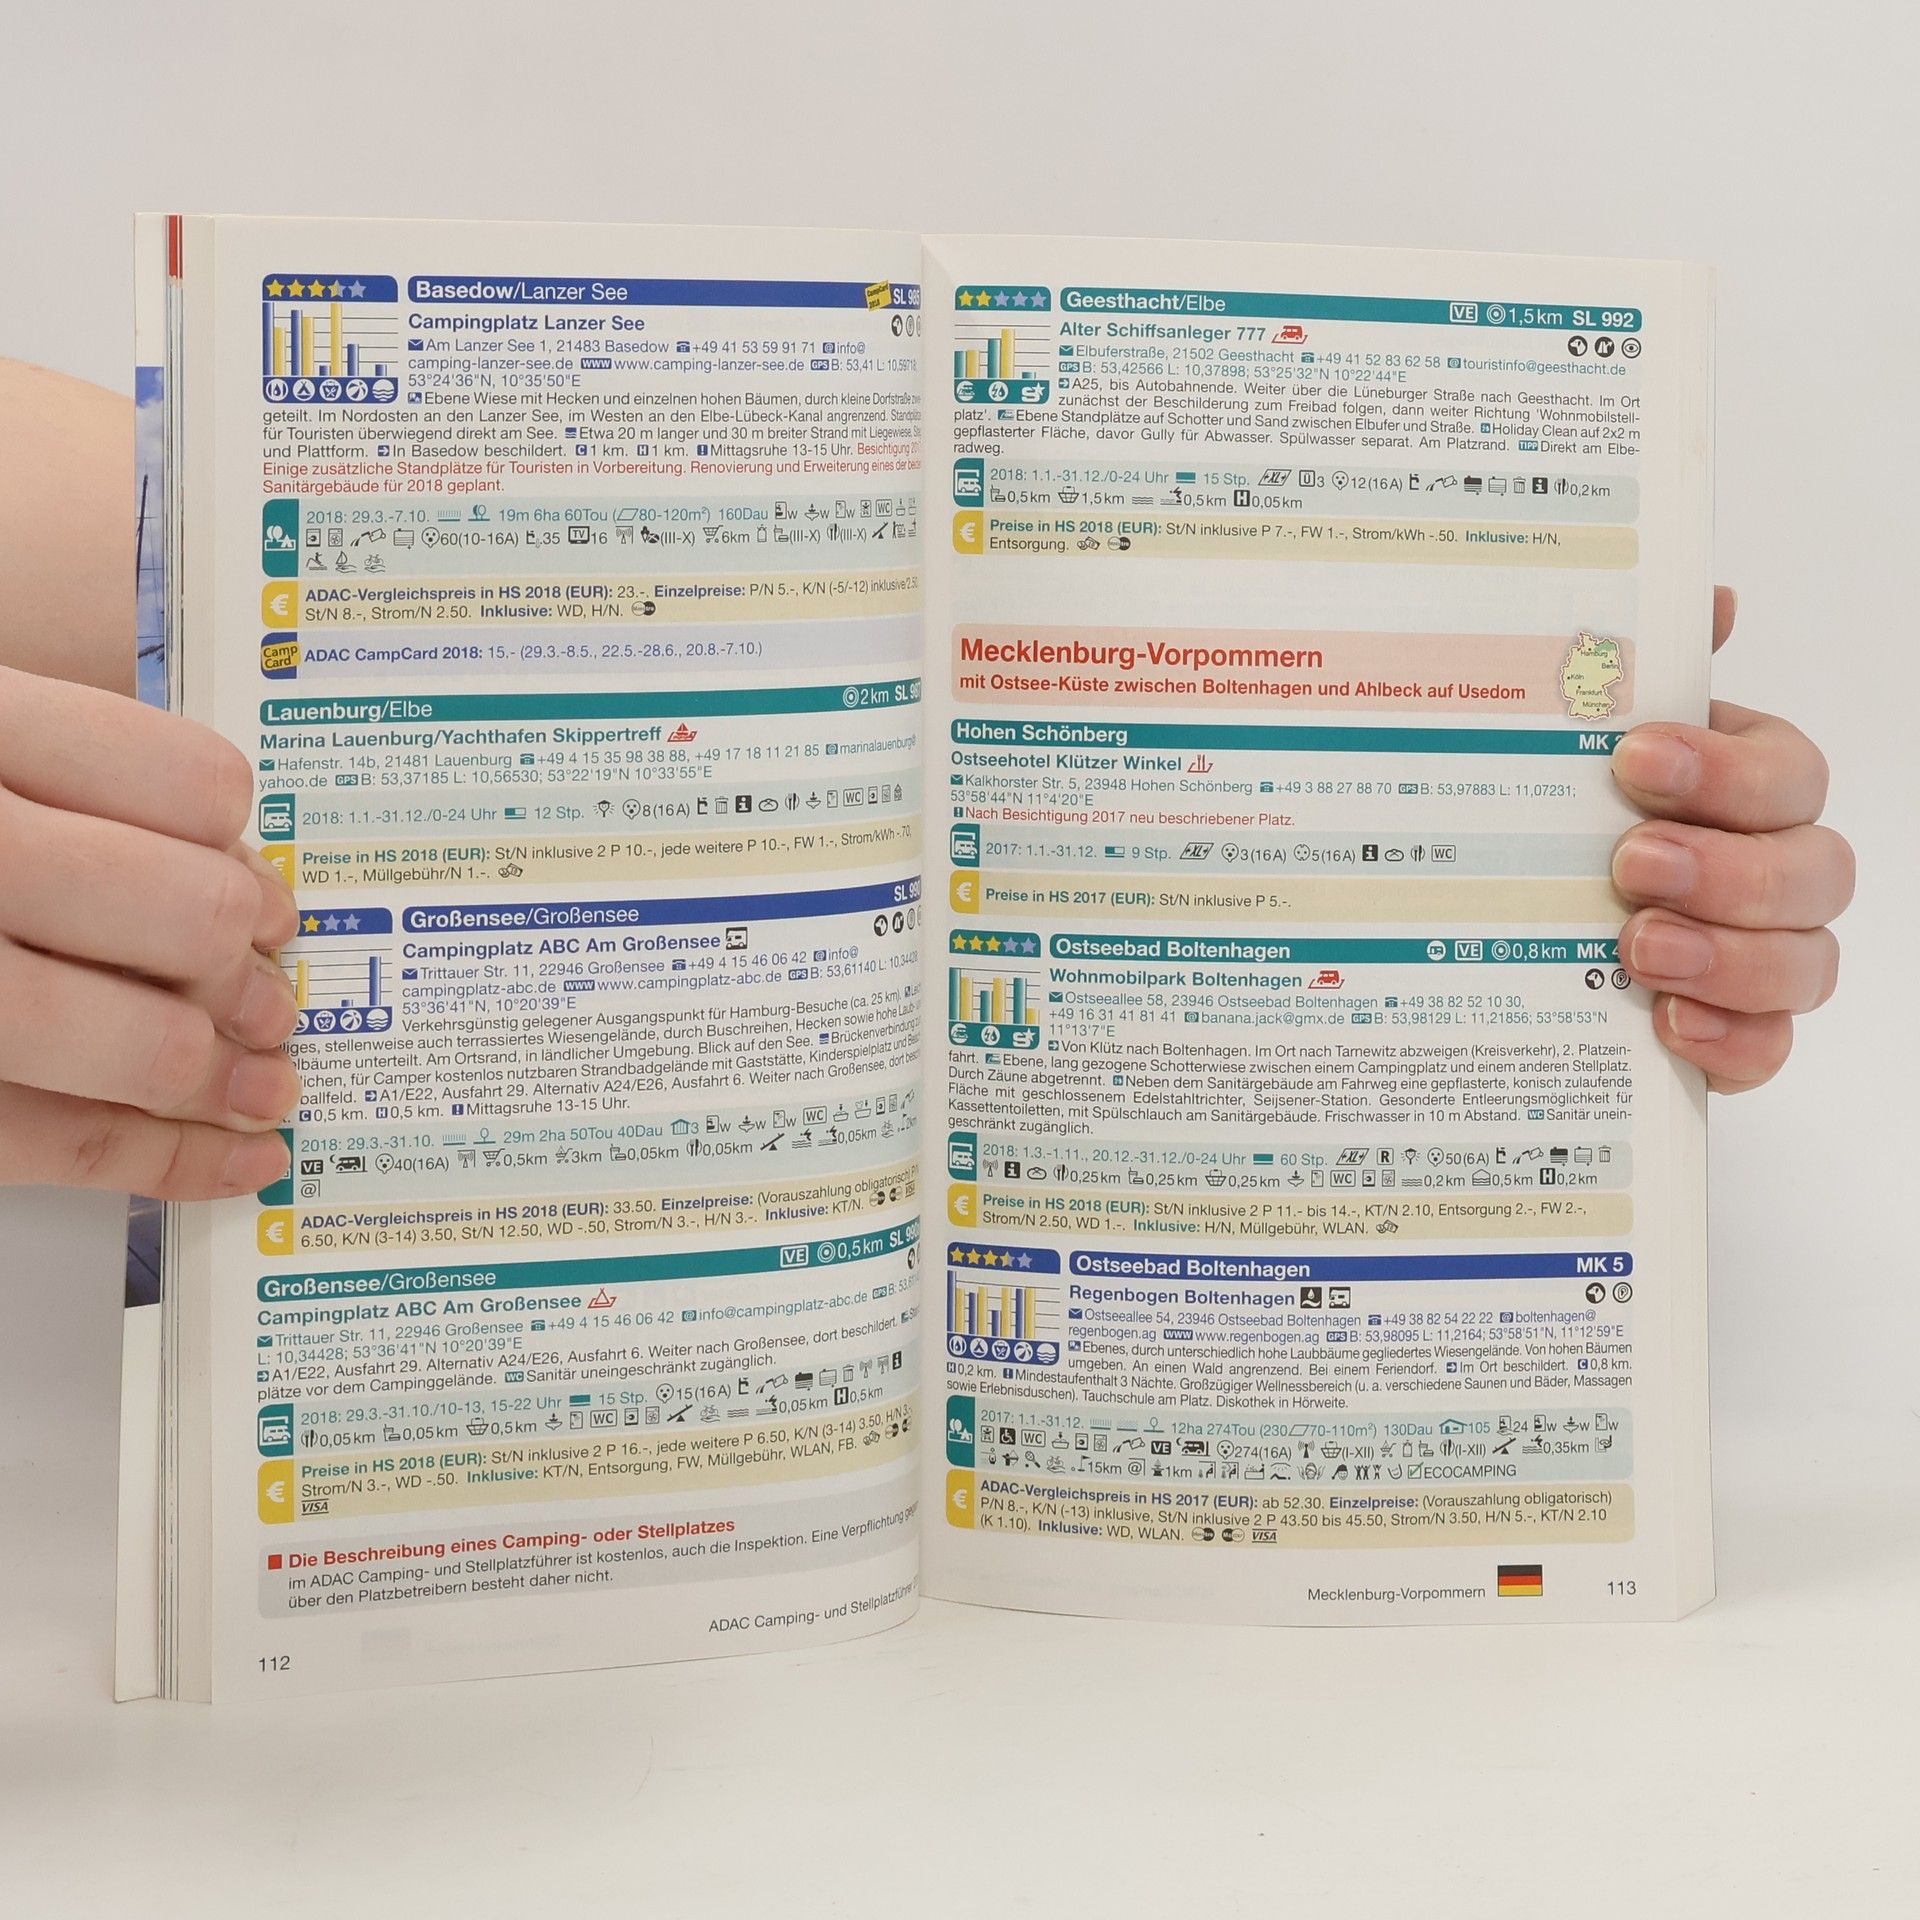 Basedow/Lanzer See
CampCard 2018
SL 985
Campingplatz Lanzer See
Am Lanzer See 1, 21483 Basedow +49 41 53 59 91 71 info@
camping-lanzer-see.de www www.camping-lanzer-see.de GPS B: 53,41 L: 10,59718,
53°24'36"N, 10°35'50"E
Ebene Wiese mit Hecken und einzelnen hohen Bäumen, durch kleine Dorfstraße
geteilt. Im Nordosten an den Lanzer See, im Westen an den Elbe-Lübeck-Kanal angrenzend.
für Touristen überwiegend direkt am See. Etwa 20 m langer und 30 m breiter Strand mit Liegewiese
und Plattform. In Basedow beschildert. C 1 km. H 1 km. ! Mittagsruhe 13-15 Uhr. Besichtigung
Einige zusätzliche Standplätze für Touristen in Vorbereitung. Renovierung und Erweiterung eines der
Sanitärgebäude für 2018 geplant.
2018: 29.3.-7.10. 19m 6ha 60Tou (80-120m²) 160Dau w w w WC
60(10-16A) 35 TV 16 (III-X) 6km (III-X) (III-X)
€ ADAC-Vergleichspreis in HS 2018 (EUR): 23.-. Einzelpreise: P/N 5.-, K/N (-5/-12) inklusive/2.50,
St/N 8.-, Strom/N 2.50. Inklusive: WD, H/N.
Camp Card ADAC CampCard 2018: 15.- (29.3.-8.5., 22.5.-28.6., 20.8.-7.10.)
Lauenburg/Elbe 2 km SL 987
Marina Lauenburg/Yachthafen Skippertreff
Hafenstr. 14b, 21481 Lauenburg +49 4 15 35 98 38 88, +49 17 18 11 21 85 marinalauenburg@
yahoo.de GPS B: 53,37185 L: 10,56530; 53°22'19"N 10°33'55"E
2018: 1.1.-31.12./0-24 Uhr 12 Stp. 8(16A) WC
Preise in HS 2018 (EUR): St/N inklusive 2 P 10.-, jede weitere P 10.-, FW 1.-, Strom/kWh -.70,
WD 1.-, Müllgebühr/N 1.-.
SL 990
Großensee/Großensee
Campingplatz ABC Am Großensee
Trittauer Str. 11, 22946 Großensee +49 4 15 46 06 42 info@
campingplatz-abc.de www www.campingplatz-abc.de GPS B: 53,61140 L: 10,34428,
53°36'41"N, 10°20'39"E
Verkehrsgünstig gelegener Ausgangspunkt für Hamburg-Besuche (ca. 25 km).
stellenweise auch terrassiertes Wiesengelände, durch Buschreihen, Hecken sowie hohe Laub-
unterteilt. Am Ortsrand, in ländlicher Umgebung. Blick auf den See. Brückenverbindung
für Camper kostenlos nutzbaren Strandbadgelände mit Gaststätte, Kinderspielplatz und
A1/E22, Ausfahrt 29. Alternativ A24/E26, Ausfahrt 6. Weiter nach Großensee, dort
C 0,5 km. H 0,5 km. ! Mittagsruhe 13-15 Uhr.
2018: 29.3.-31.10. 29m 2ha 50Tou 40Dau 3 w w w WC
VE 40(16A) 0,5km 3km 0,05km 0,05km 0,05km 2km
@
€ ADAC-Vergleichspreis in HS 2018 (EUR): 33.50. Einzelpreise: (Vorauszahlung obligatorisch)
6.50, K/N (3-14) 3.50, St/N 12.50, WD -.50, Strom/N 3.-, H/N 3.-. Inklusive: KT/N. VISA
VE 0,5 km SL
Großensee/Großensee
Campingplatz ABC Am Großensee
Trittauer Str. 11, 22946 Großensee +49 4 15 46 06 42 info@campingplatz-abc.de GPS B:
L: 10,34428; 53°36'41"N 10°20'39"E
A1/E22, Ausfahrt 29. Alternativ A24/E26, Ausfahrt 6. Weiter nach Großensee, dort beschildert.
plätze vor dem Campinggelände. WC Sanitär uneingeschränkt zugänglich.
2018: 29.3.-31.10./10-13, 15-22 Uhr 15 Stp. 15(16A) i
0,05 km 0,05 km 0,5 km WC 0,05 km H 0,5 km
€ Preise in HS 2018 (EUR): St/N inklusive 2 P 16.-, jede weitere P 6.50, K/N (3-14) 3.50, H/N 3.-,
Strom/N 3.-, WD -.50. Inklusive: KT/N, Entsorgung, FW, Müllgebühr, WLAN, FB.
VISA
Die Beschreibung eines Camping- oder Stellplatzes
im ADAC Camping- und Stellplatzführer ist kostenlos, auch die Inspektion. Eine Verpflichtung
über den Platzbetreibern besteht daher nicht.
ADAC Camping- und Stellplatzführer
112
Geesthacht/Elbe VE 1,5 km SL 992
Alter Schiffsanleger 777
Elbuferstraße, 21502 Geesthacht +49 41 52 83 62 58 touristinfo@geesthacht.de
GPS B: 53,42566 L: 10,37898; 53°25'32"N 10°22'44"E
A25, bis Autobahnende. Weiter über die Lüneburger Straße nach Geesthacht. Im Ort
zunächst der Beschilderung zum Freibad folgen, dann weiter Richtung 'Wohnmobilstell-
platz'. Ebene Standplätze auf Schotter und Sand zwischen Elbufer und Straße. Holiday Clean auf 2x2 m
gepflasterter Fläche, davor Gully für Abwasser. Spülwasser separat. Am Platzrand. TIPP Direkt am Elbe-
radweg.
2018: 1.1.-31.12./0-24 Uhr 15 Stp. XL Ü 3 12(16A) i 0,2 km
0,5 km 1,5 km 0,5 km H 0,05 km
€ Preise in HS 2018 (EUR): St/N inklusive P 7.-, FW 1.-, Strom/kWh -.50. Inklusive: H/N,
Entsorgung.
Mecklenburg-Vorpommern
mit Ostsee-Küste zwischen Boltenhagen und Ahlbeck auf Usedom
Hamburg
Berlin
Köln
Frankfurt
München
Hohen Schönberg MK
Ostseehotel Klützer Winkel
Kalkhorster Str. 5, 23948 Hohen Schönberg +49 3 88 27 88 70 GPS B: 53,97883 L: 11,07231;
53°58'44"N 11°4'20"E
! Nach Besichtigung 2017 neu beschriebener Platz.
2017: 1.1.-31.12. 9 Stp. XL 3(16A) 5(16A) i WC
€ Preise in HS 2017 (EUR): St/N inklusive P 5.-.
Ostseebad Boltenhagen VE 0,8 km MK 4
Wohnmobilpark Boltenhagen
Ostseeallee 58, 23946 Ostseebad Boltenhagen +49 38 82 52 10 30,
+49 16 31 41 81 41 banana.jack@gmx.de GPS B: 53,98129 L: 11,21856; 53°58'53"N
11°13'7"E
Von Klütz nach Boltenhagen. Im Ort nach Tarnewitz abzweigen (Kreisverkehr), 2. Platzein-
fahrt. Ebene, lang gezogene Schotterwiese zwischen einem Campingplatz und einem anderen Stellplatz.
Durch Zäune abgetrennt. Neben dem Sanitärgebäude am Fahrweg eine gepflasterte, konisch zulaufende
Fläche mit geschlossenem Edelstahltrichter, Seijsener-Station. Gesonderte Entleerungsmöglichkeit für
Kassettentoiletten, mit Spülschlauch am Sanitärgebäude. Frischwasser in 10 m Abstand. WC Sanitär unein-
geschränkt zugänglich.
2018: 1.3.-1.11., 20.12.-31.12./0-24 Uhr 60 Stp. XL R 50(6A)
i 0,25 km 0,25 km 0,25 km WC 0,2 km 0,5 km H 0,2 km
€ Preise in HS 2018 (EUR): St/N inklusive 2 P 11.- bis 14.-, KT/N 2.10, Entsorgung 2.-, FW 2.-,
Strom/N 2.50, WD 1.-. Inklusive: H/N, Müllgebühr, WLAN.
Ostseebad Boltenhagen MK 5
Regenbogen Boltenhagen
Ostseeallee 54, 23946 Ostseebad Boltenhagen +49 38 82 54 22 22 boltenhagen@
regenbogen.ag www www.regenbogen.ag GPS B: 53,98095 L: 11,2164; 53°58'51"N, 11°12'59"E
Ebenes, durch unterschiedlich hohe Laubbäume gegliedertes Wiesengelände. Von hohen Bäumen
umgeben. An einen Wald angrenzend. Bei einem Feriendorf. Im Ort beschildert. C 0,8 km.
H 0,2 km. ! Mindestaufenthalt 3 Nächte. Großzügiger Wellnessbereich (u. a. verschiedene Saunen und Bäder, Massagen
sowie Erlebnisduschen). Tauchschule am Platz. Diskothek in Hörweite.
2017: 1.1.-31.12. 12ha 274Tou (230 70-110m²) 130Dau 105 24 w w w
WC VE 274(16A) (I-XII) (I-XII) 0,35km
15km @ 1km ECOCAMPING
€ ADAC-Vergleichspreis in HS 2017 (EUR): ab 52.30. Einzelpreise: (Vorauszahlung obligatorisch)
P/N 8.-, K/N (-13) inklusive, St/N inklusive 2 P 43.50 bis 45.50, Strom/N 3.50, H/N 5.-, KT/N 2.10
(K 1.10). Inklusive: WD, WLAN. VISA
Mecklenburg-Vorpommern 113